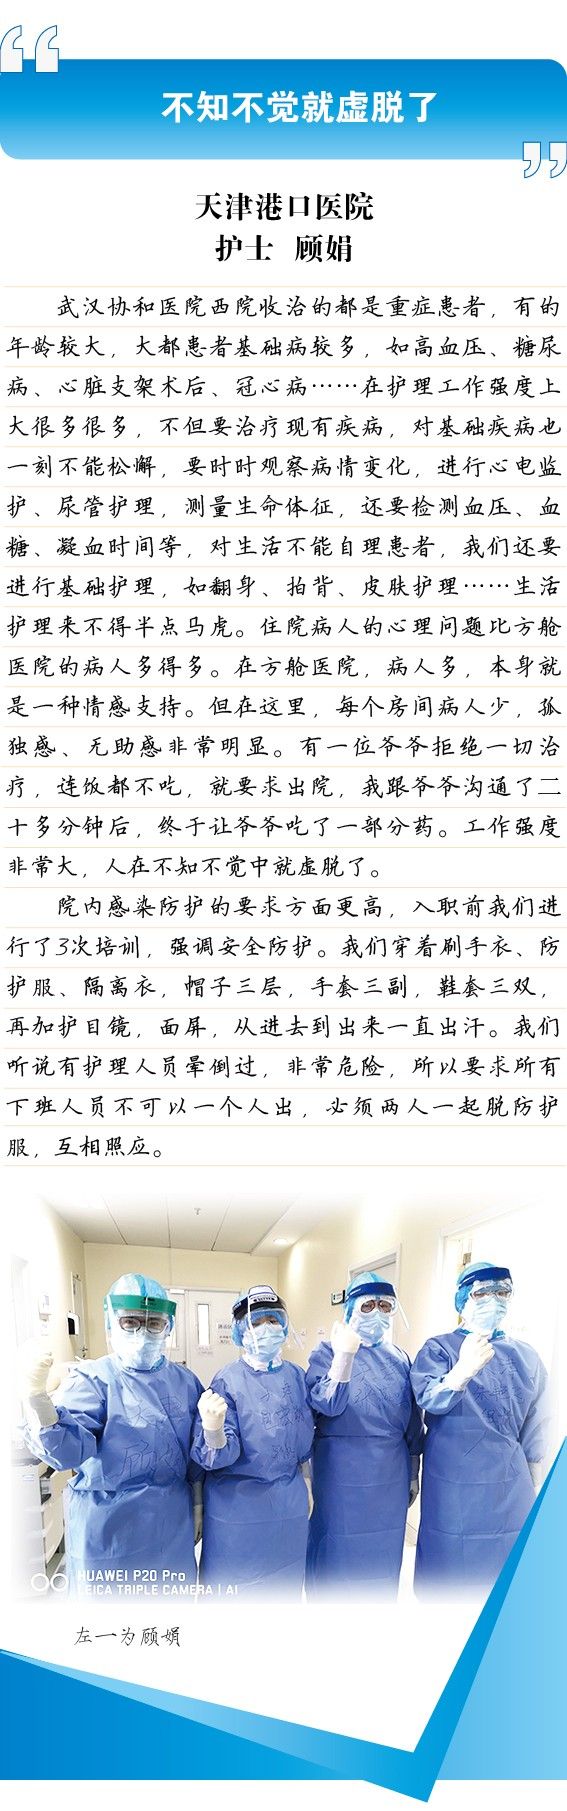 不知不觉就虚脱了
天津港口医院
护士 顾娟
武汉协和医院西院收治的都是重症患者，有的
年龄较大，大都患者基础病较多，如高血压、糖尿
病、心脏支架术后、冠心病……在护理工作强度上
大很多很多，不但要治疗现有疾病，对基础疾病也
一刻不能松懈，要时时观察病情变化，进行心电监
护、尿管护理，测量生命体征，还要检测血压、血
糖、凝血时间等，对生活不能自理患者，我们还要
进行基础护理，如翻身、拍背、皮肤护理……生活
护理来不得半点马虎。住院病人的心理问题比方舱
医院的病人多得多。在方舱医院，病人多，本身就
是一种情感支持。但在这里，每个房间病人少，孤
独感、无助感非常明显。有一位爷爷拒绝一切治
疗，连饭都不吃，就要求出院，我跟爷爷沟通了二
十多分钟后，终于让爷爷吃了一部分药。工作强度
非常大，人在不知不觉中就虚脱了。
院内感染防护的要求方面更高，入职前我们进
行了3次培训，强调安全防护。我们穿着刷手衣、防
护服、隔离衣，帽子三层，手套三副，鞋套三双，
再加护目镜，面屏，从进去到出来一直出汗。我们
听说有护理人员晕倒过，非常危险，所以要求所有
下班人员不可以一个人出，必须两人一起脱防护
服，互相照应。
HUAWEI P20 Pro
LEICA TRIPLE CAMERA | AI
左一为顾娟